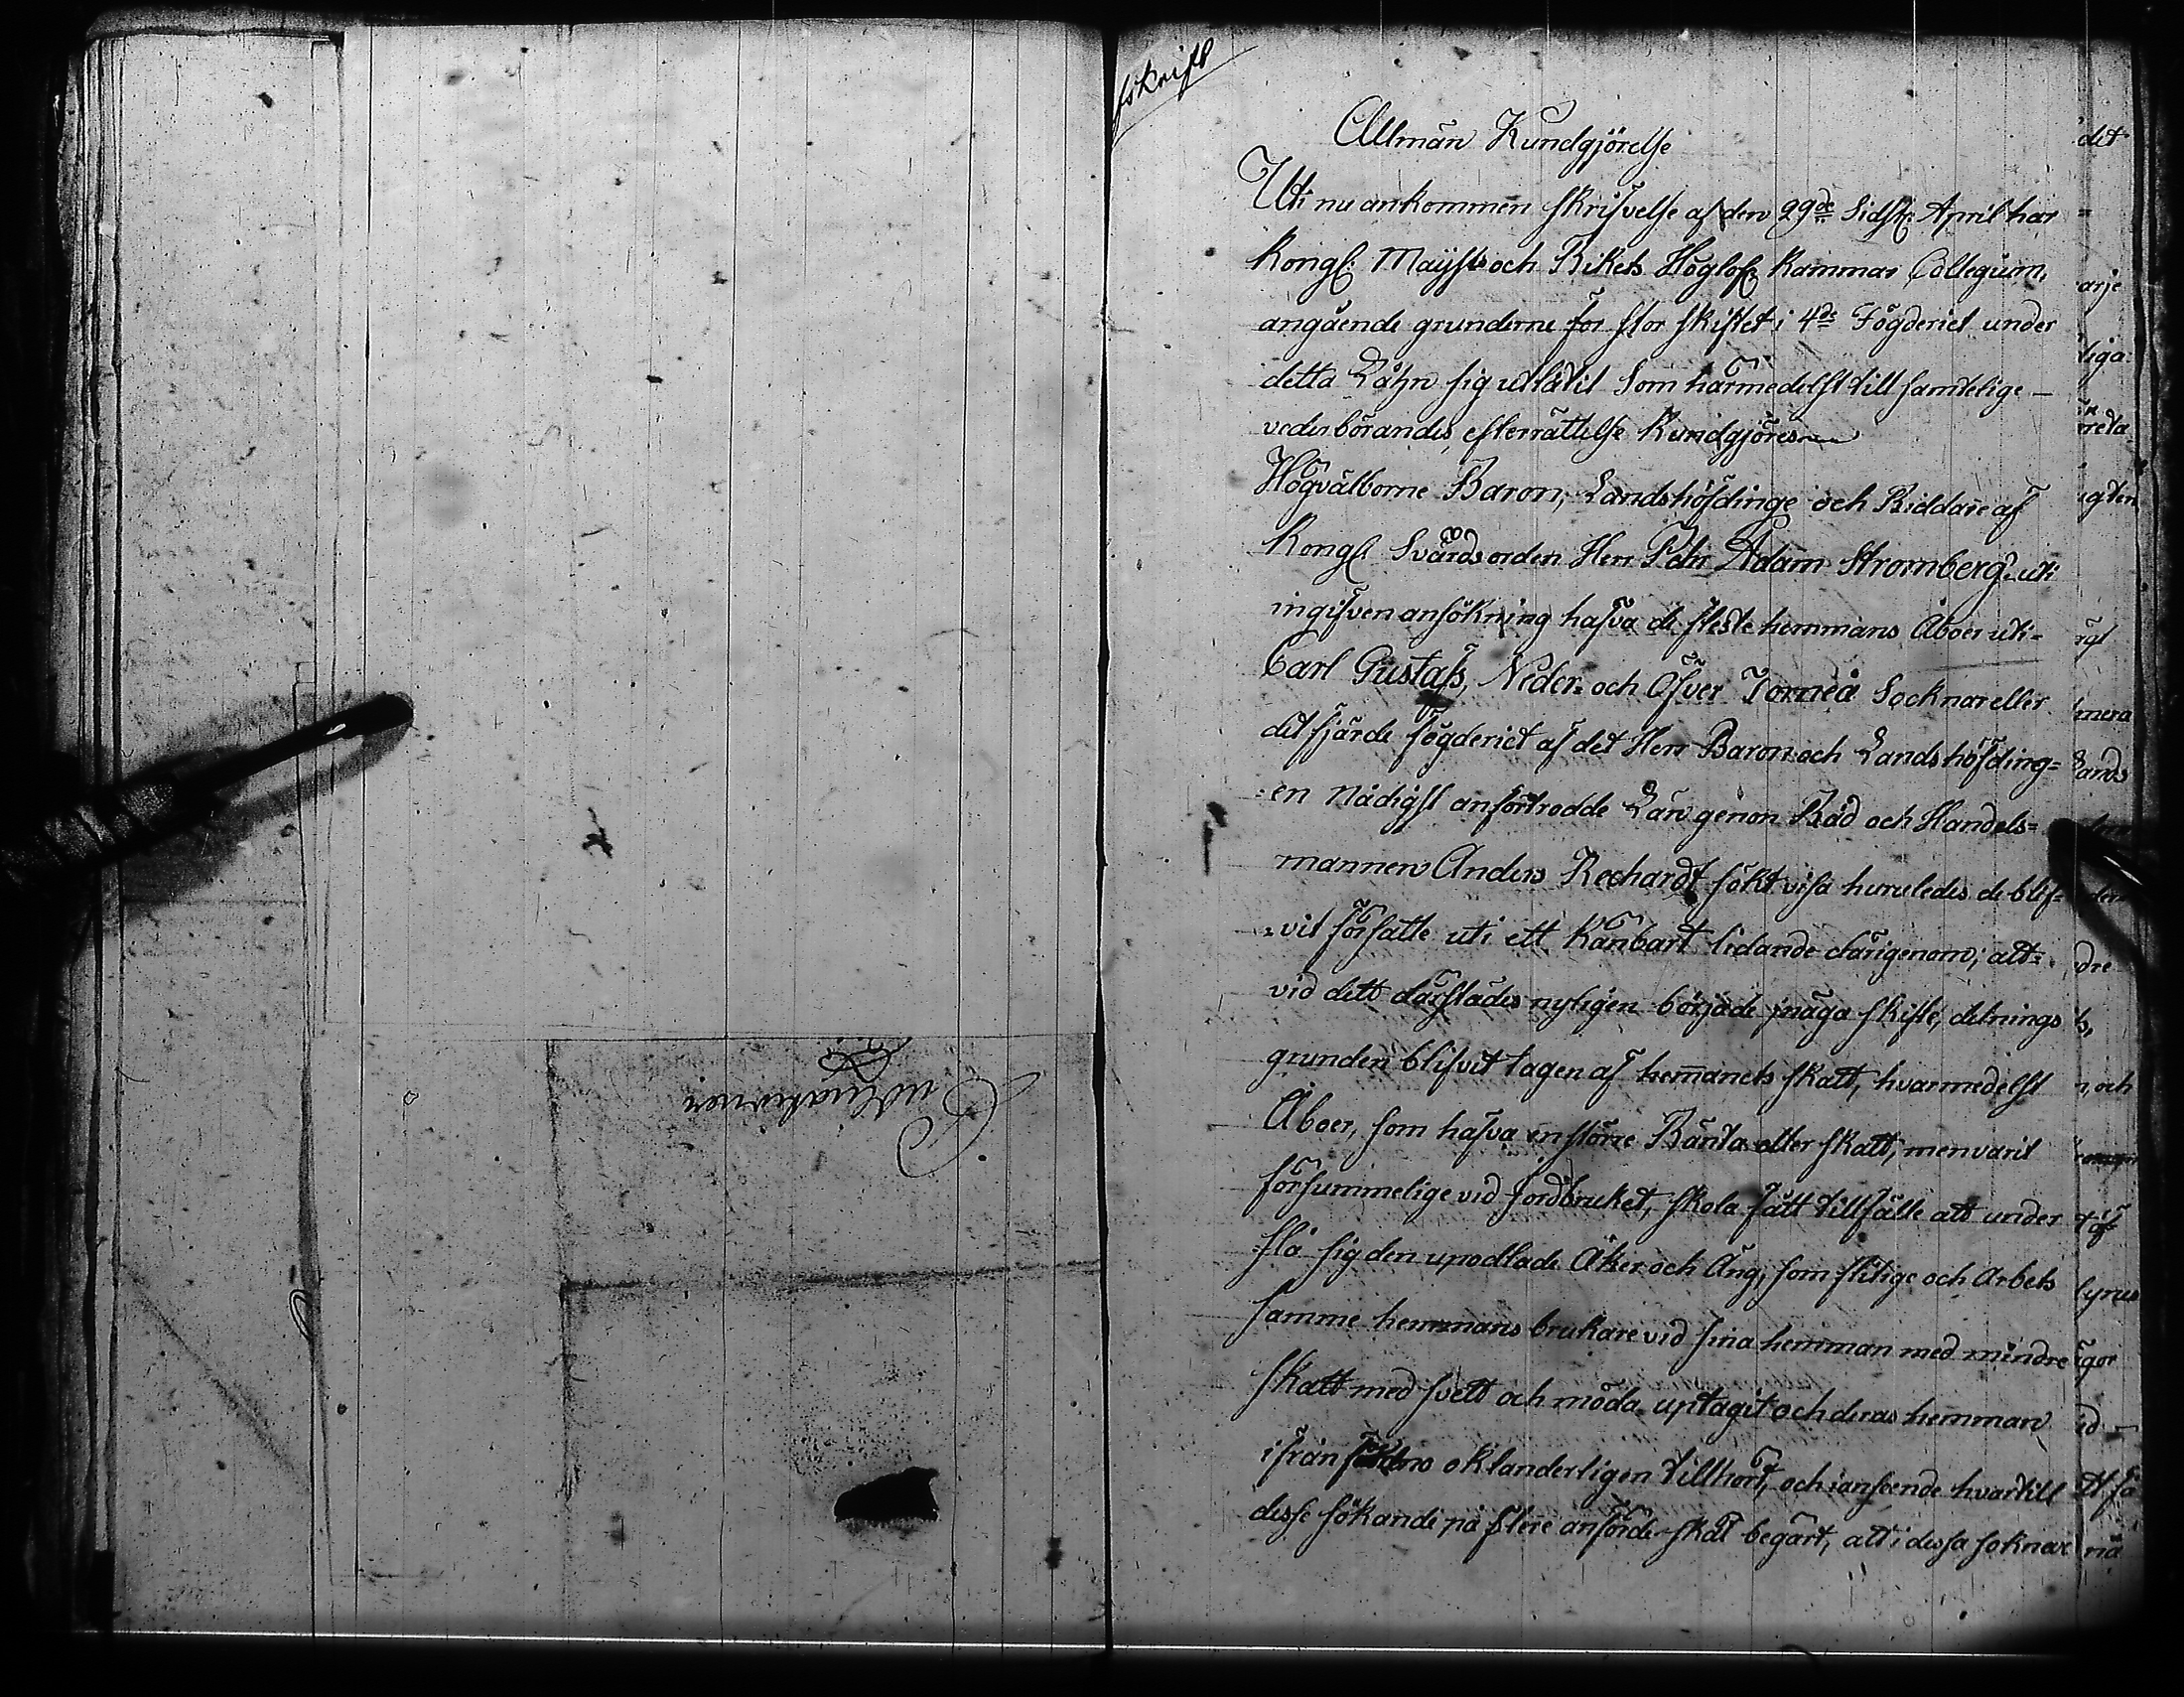 fskrift
Allmän Kundgjörelse
Uti nu ankommen skrifvelse af den 29de Sidstl. April har
Kongl. Mayjsts och Rikets Höglofl. Kammar Collegium,
angående grunderne för stor skiftet i 4de Fögderiet under
detta Låhn sig utlåtit Som härmedelst till samtelige
vederbörandes efterrättelse Kundgjöres
Högvälborne Baron, Landshöfdinge och Riddare af
Kongl Svärdsorden Herr Pehr Adam Stromberg. uti
ingifven ansökning hafva de fleste hemmans Åboer uti-
Carl Gustafs, Neder- och Öfver Torneå Socknar eller
det fjärde fögderiet af det Herr Baron och Landshöfding=
=en Nådigst anförtrodde Län genon Råd och Handels=
mannen Anders Rechardt sökt visa huruledes de blif=
=vit försatte uti ett Känbart lidande därigenom; att=
vid dett därstädes nyligen började änäga skifte, delnings
grunden blifvit tagen af hem̄anets skatt, hvarmedelst
Åboer, som hafva en större Ränta eller skatt, men varit
försummelige vid Jordbruket, skola fått tillfälle att under
slå sig den upodlade Åker och Äng, som flitige och Arbets
samme hemmans brukare vid sina hemman med mindre
skatt med svett och möda uptagit och deras hemman
ifrån oklanderligen tillhört, och ianseende hvartill
desse sökande på flere anförde skäl begärt, att i dessa soknar